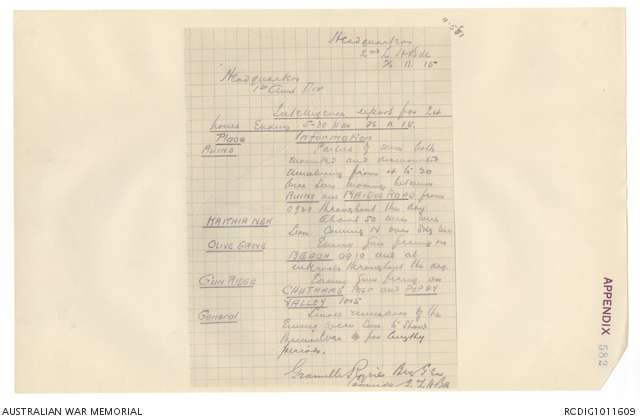 Headquarters
2nd L H Bde
11. 15
Headquarters
1st Aust Div
Intelligence report for 24
hours Ending
Place Information
RUINS Parties of men both
mounted and dismounted
numbering from 4 to 30
were seen moving between
RUINS and MAIDOS ROAD from
throughout the day
KAITHIA NEK About 50 men were
seen coming N over
OLIVE GROVE Enemy Guns firing on
BEACH 0910 and at
intervals throughout the day
GUN RIDGE Enemy Guns firing on
CHATHAMS POST and POPPY
VALLEY 1015
General Since cessation of fire
Enemy were seen to show
themselves for lengthy
periods.
Granville Ryrie Brig Gen
L H Bde
APPENDIX 582
AUSTRALIAN WAR MEMORIAL
RCDIG1011605